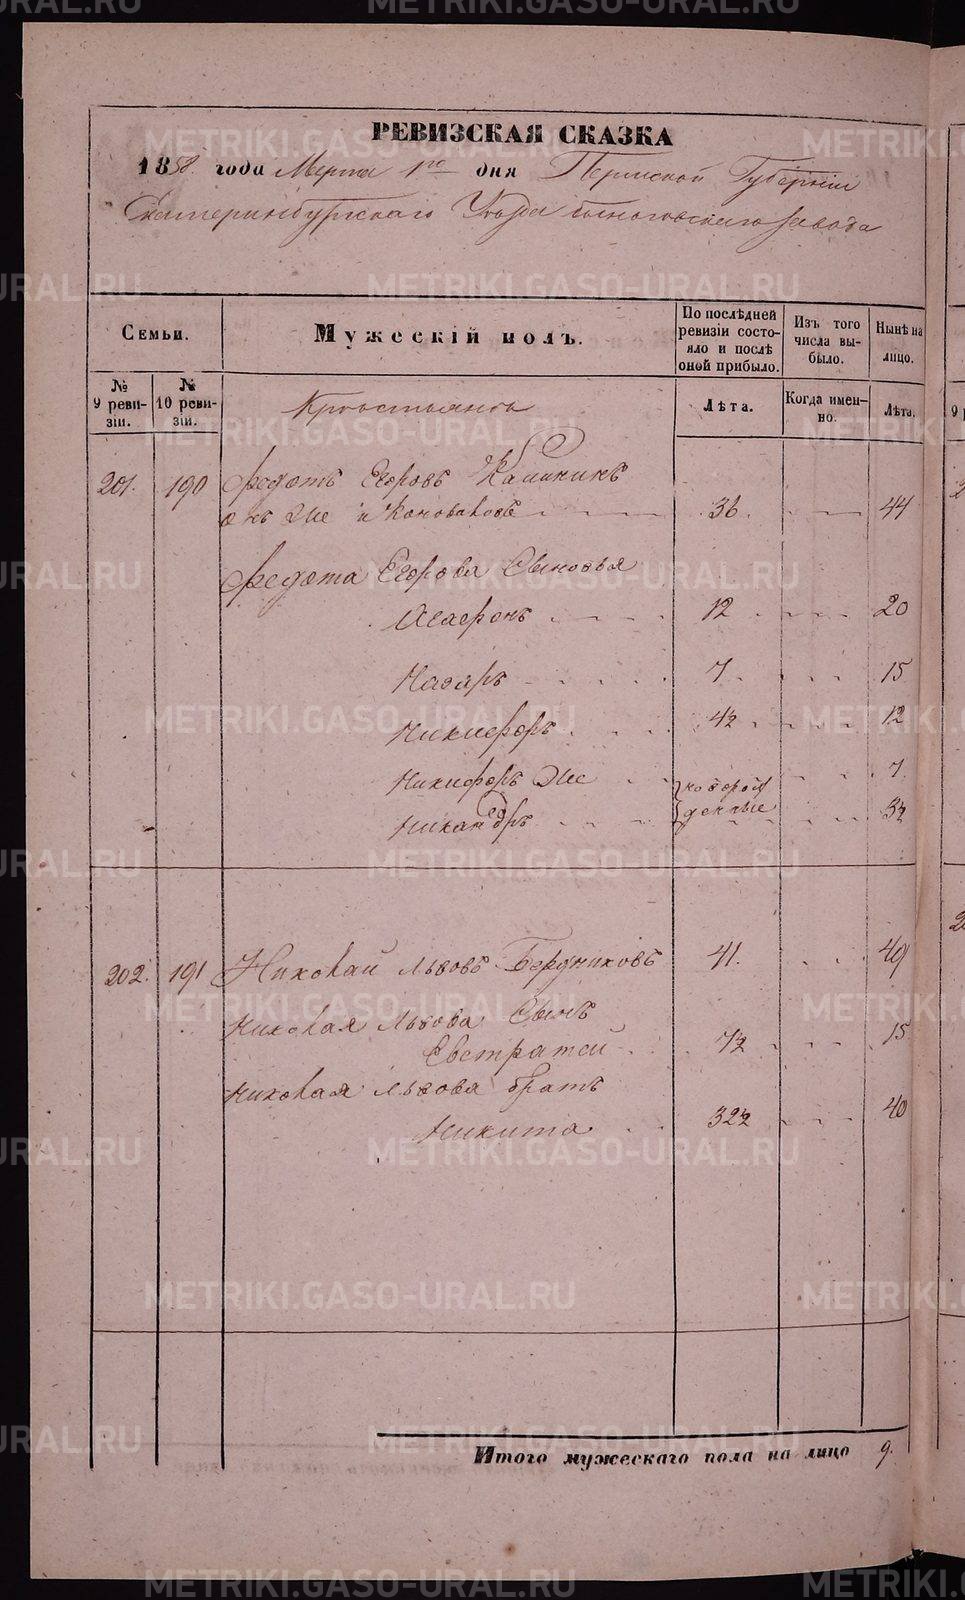 РЕВИЗСКАЯ СКАЗКА
1858 года Марта 1го дня Пермской Губерніи
Екатеринбургскаго Уезда завода
Семьи.
Мужескій полъ.
По послѣдней ревизіи состояло и послѣ оной прибыло.
Изъ того числа выбыло.
Нынѣ на лицо.
№ 9 ревизіи.
№ 10 ревизіи.
Лѣта.
Когда именно.
Лѣта.
201. 190 Федотъ Егоровъ Калининъ
онъ же и Коноваловъ 36. 44
Федота Егорова Сыновья
Агафонъ 12 20
Назаръ 7. 15
Никифоръ 4½ 12
Никифоръ же 7.
Никандръ 3½
202. 191 Николай Львовъ Бердниковъ 41. 49
Николая Львова Сынъ
Евстратей 7½ 15
Николая Львова братъ
Никита 32½ 40
Итого мужескаго пола на лицо 9.
METRIKI.GASO-URAL.RU